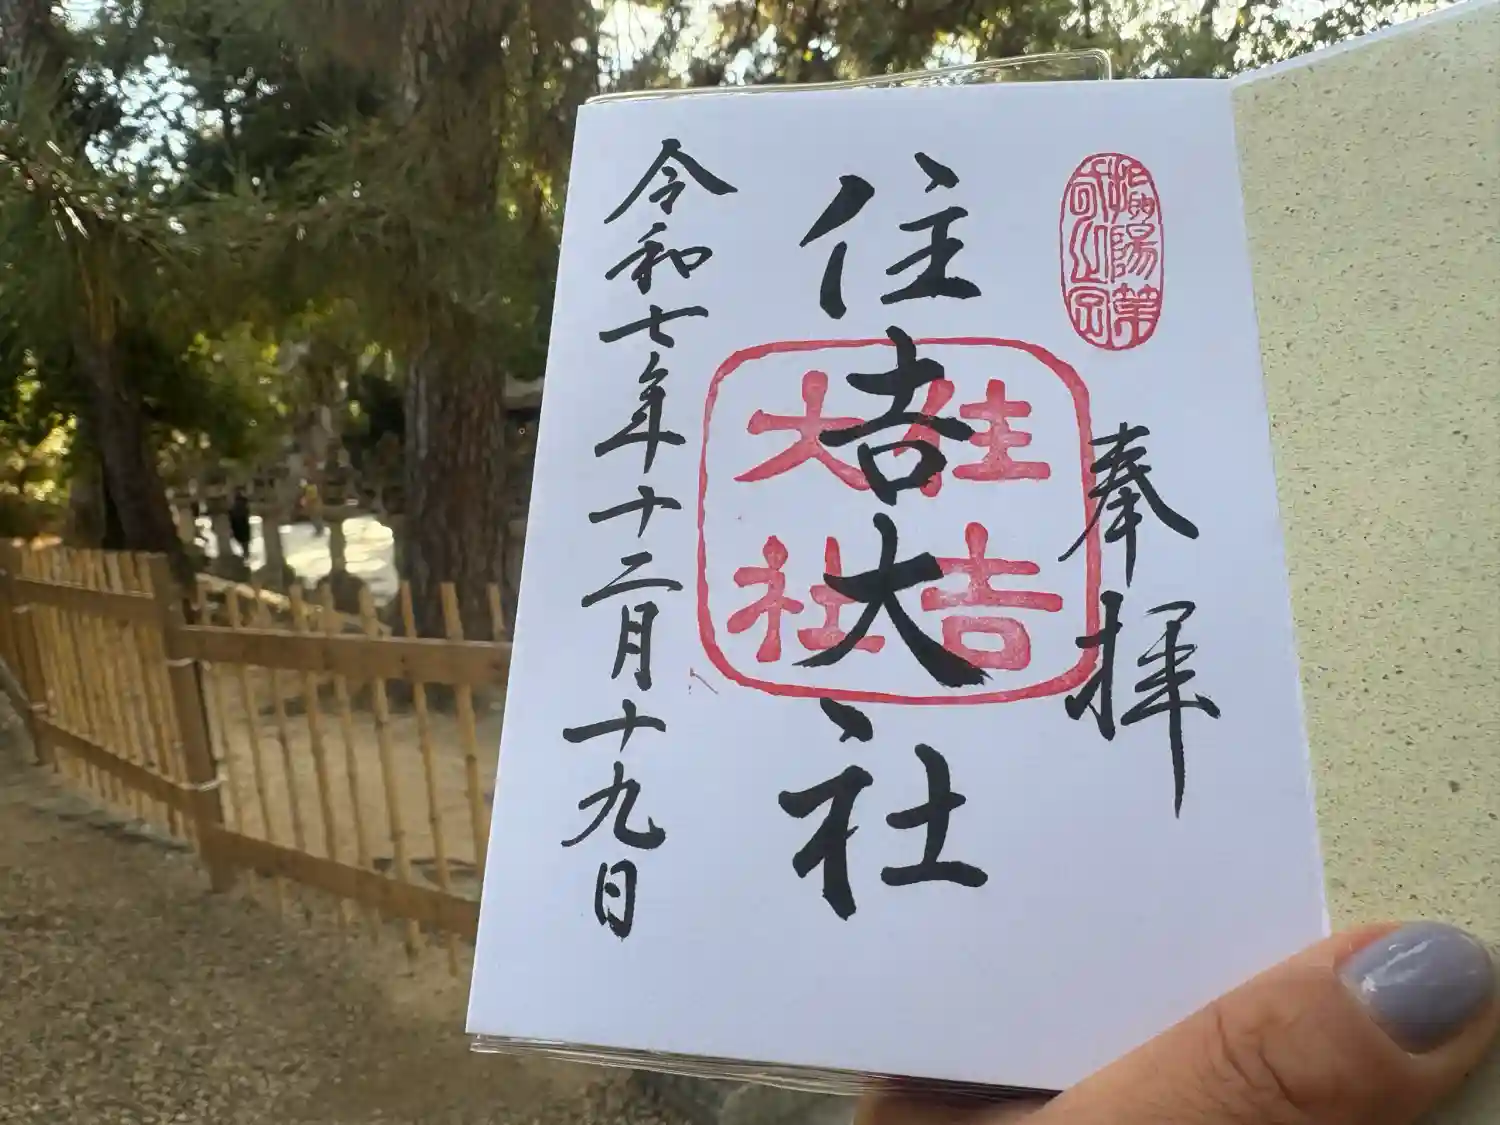 奉拝
住吉大社
住吉
大社
令和七年十二月十九日